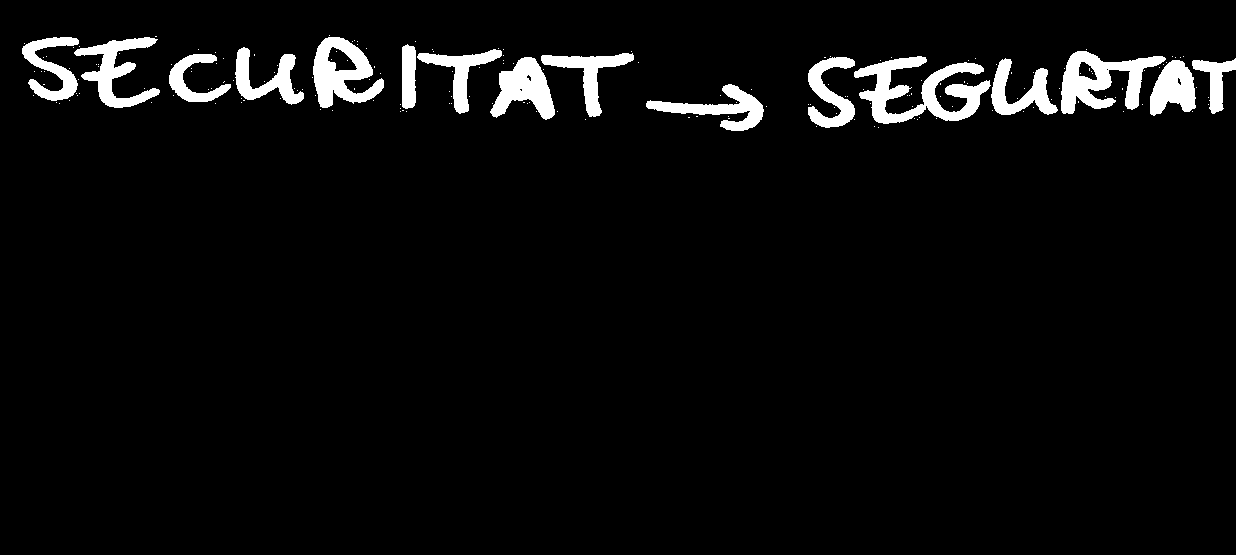 SECURITAT → SEGURTAT